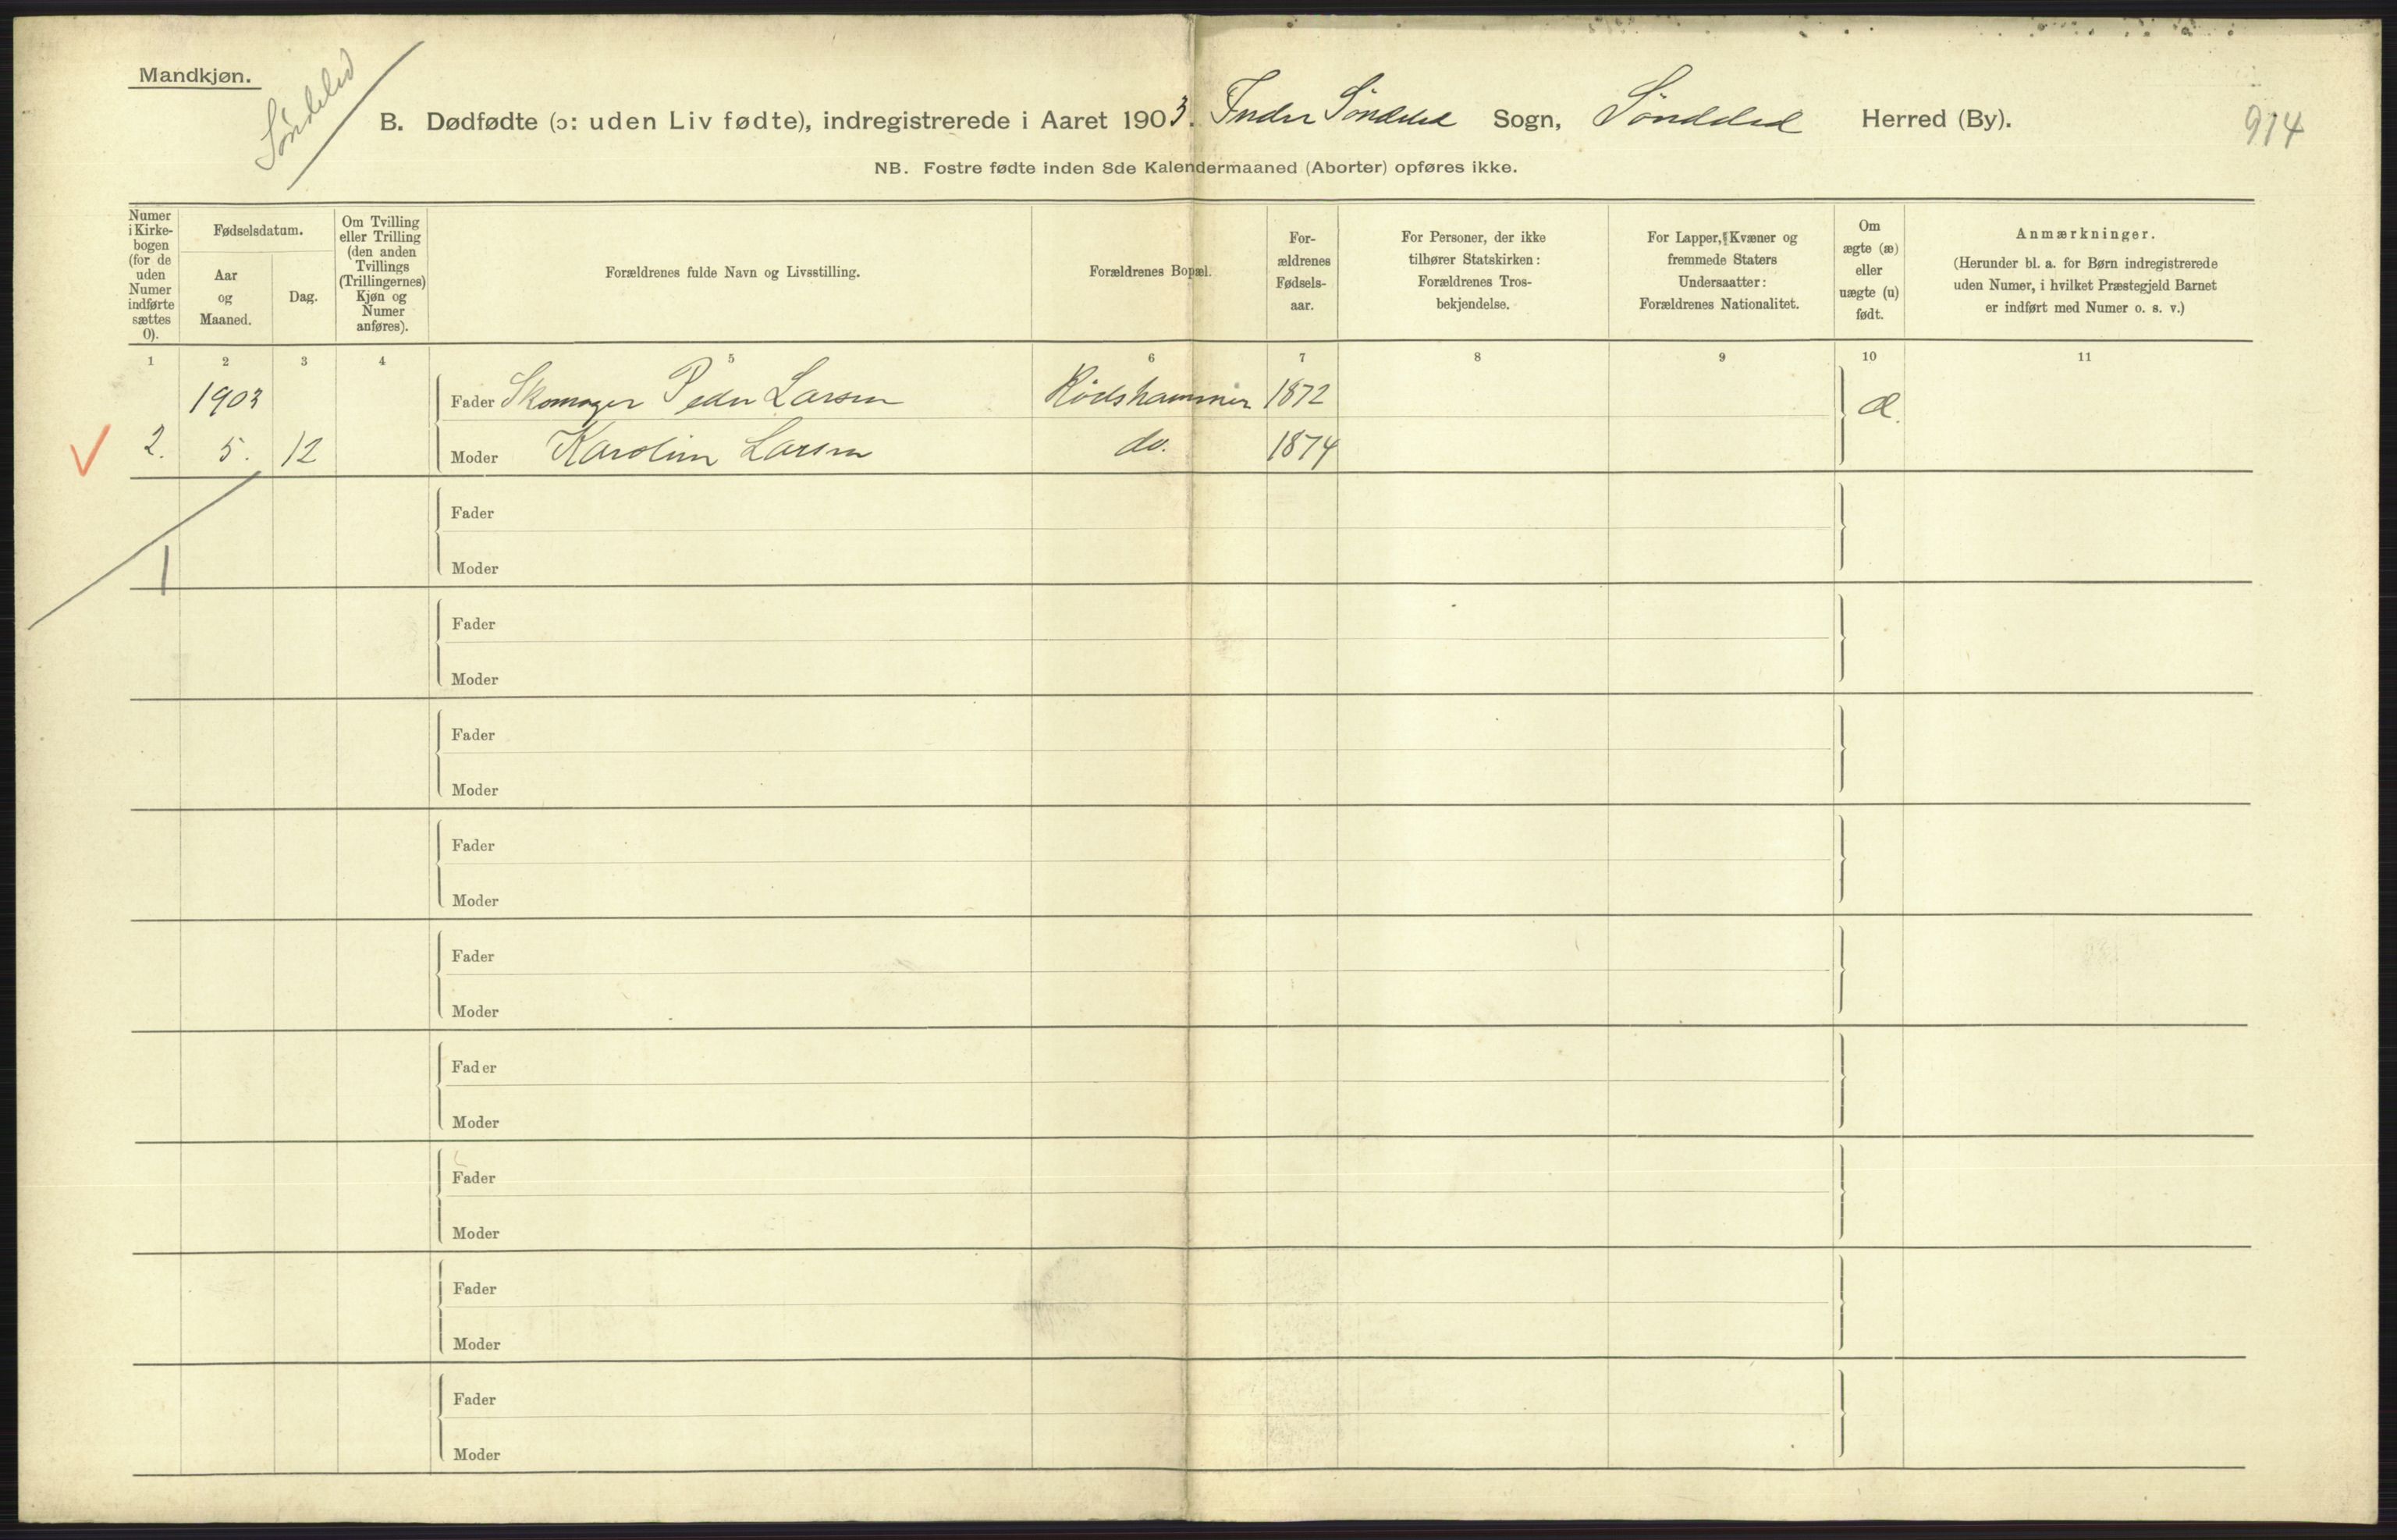 Mandkjøn.
Søndeled
B. Dødfødte (ɔ: uden Liv fødte), indregistrerede i Aaret 1903. Indre Søndeled Sogn, Søndeled Herred (By).
914
NB. Fostre fødte inden 8de Kalendermaaned (Aborter) opføres ikke.
Numer i Kirke-bogen (for de uden Numer indførte sættes 0).
Fødselsdatum.
Aar og Maaned.
Dag.
Om Tvilling eller Trilling (den anden Tvillings (Trillingernes) Kjøn og Numer anføres).
Forældrenes fulde Navn og Livsstilling.
Forældrenes Bopæl.
For-ældrenes Fødsels-aar.
For Personer, der ikke tilhører Statskirken: Forældrenes Tros-bekjendelse.
For Lapper, Kvæner og fremmede Staters Undersaatter: Forældrenes Nationalitet.
Om ægte (æ) eller uægte (u) født.
Anmærkninger.
(Herunder bl. a. for Børn indregistrerede uden Numer, i hvilket Præstegjeld Barnet er indført med Numer o. s. v.)
1 2 3 4 5 6 7 8 9 10 11
1903 Fader Skomager Peder Larsen Rødshammer 1872 æ.
2. 5. 12 Moder Karoline Larsen do. 1874
Fader
1
Moder
Fader
Moder
Fader
Moder
Fader
Moder
Fader
Moder
Fader
Moder
Fader
Moder
Fader
Moder
Fader
Moder